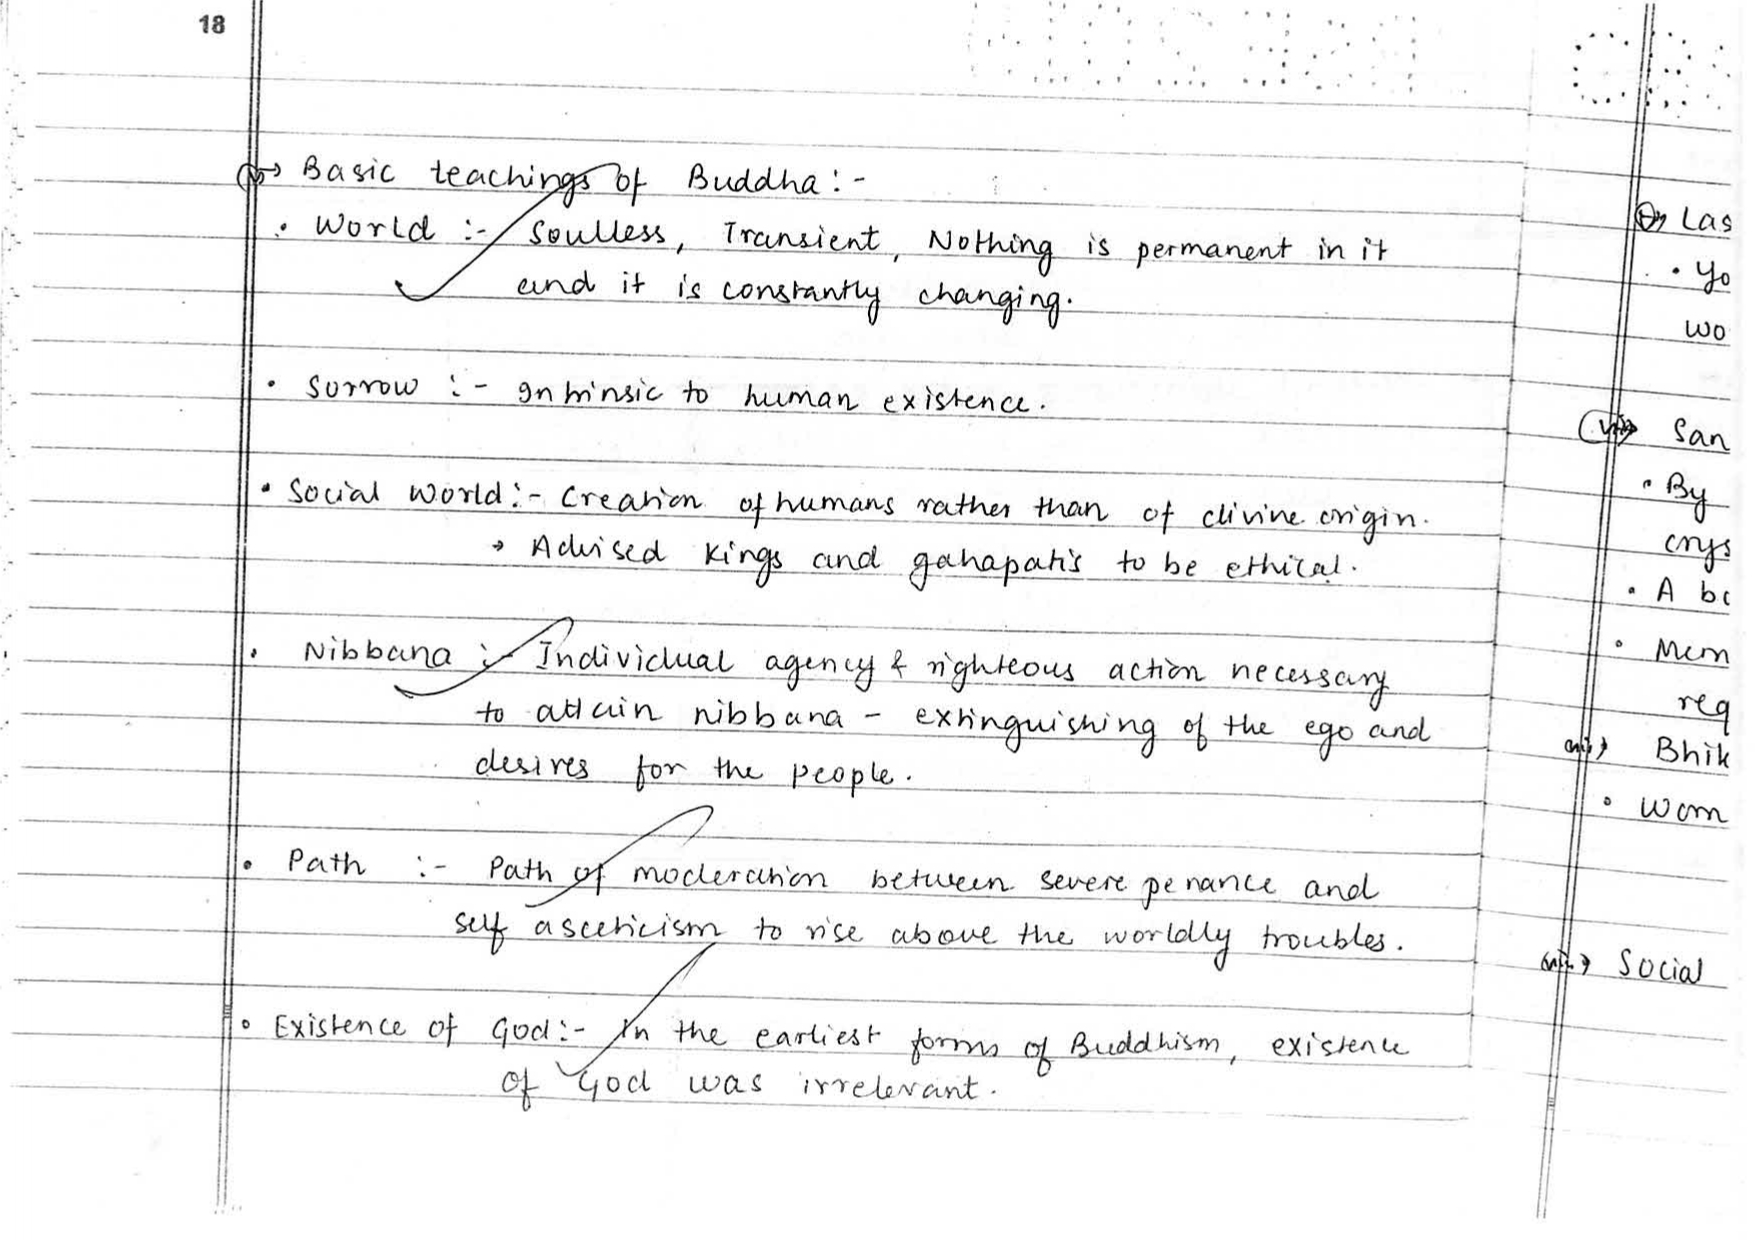 18
Basic teachings of Buddha :-
• World :- Soulless, Transient, Nothing is permanent in it
and it is constantly changing.
• Sorrow :- Intrinsic to human existence.
• Social World :- Creation of humans rather than of divine origin.
→ Advised kings and gahapatis to be ethical.
• Nibbana :- Individual agency & righteous action necessary
to attain nibbana - extinguishing of the ego and
desires for the people.
• Path :- Path of moderation between severe penance and
self asceticism to rise above the worldly troubles.
• Existence of God :- In the earliest forms of Buddhism, existence
of God was irrelevant.
Las
• Yo
wo
San
• By
crys
• A bo
• Mem
req
Bhik
• Wom
Social